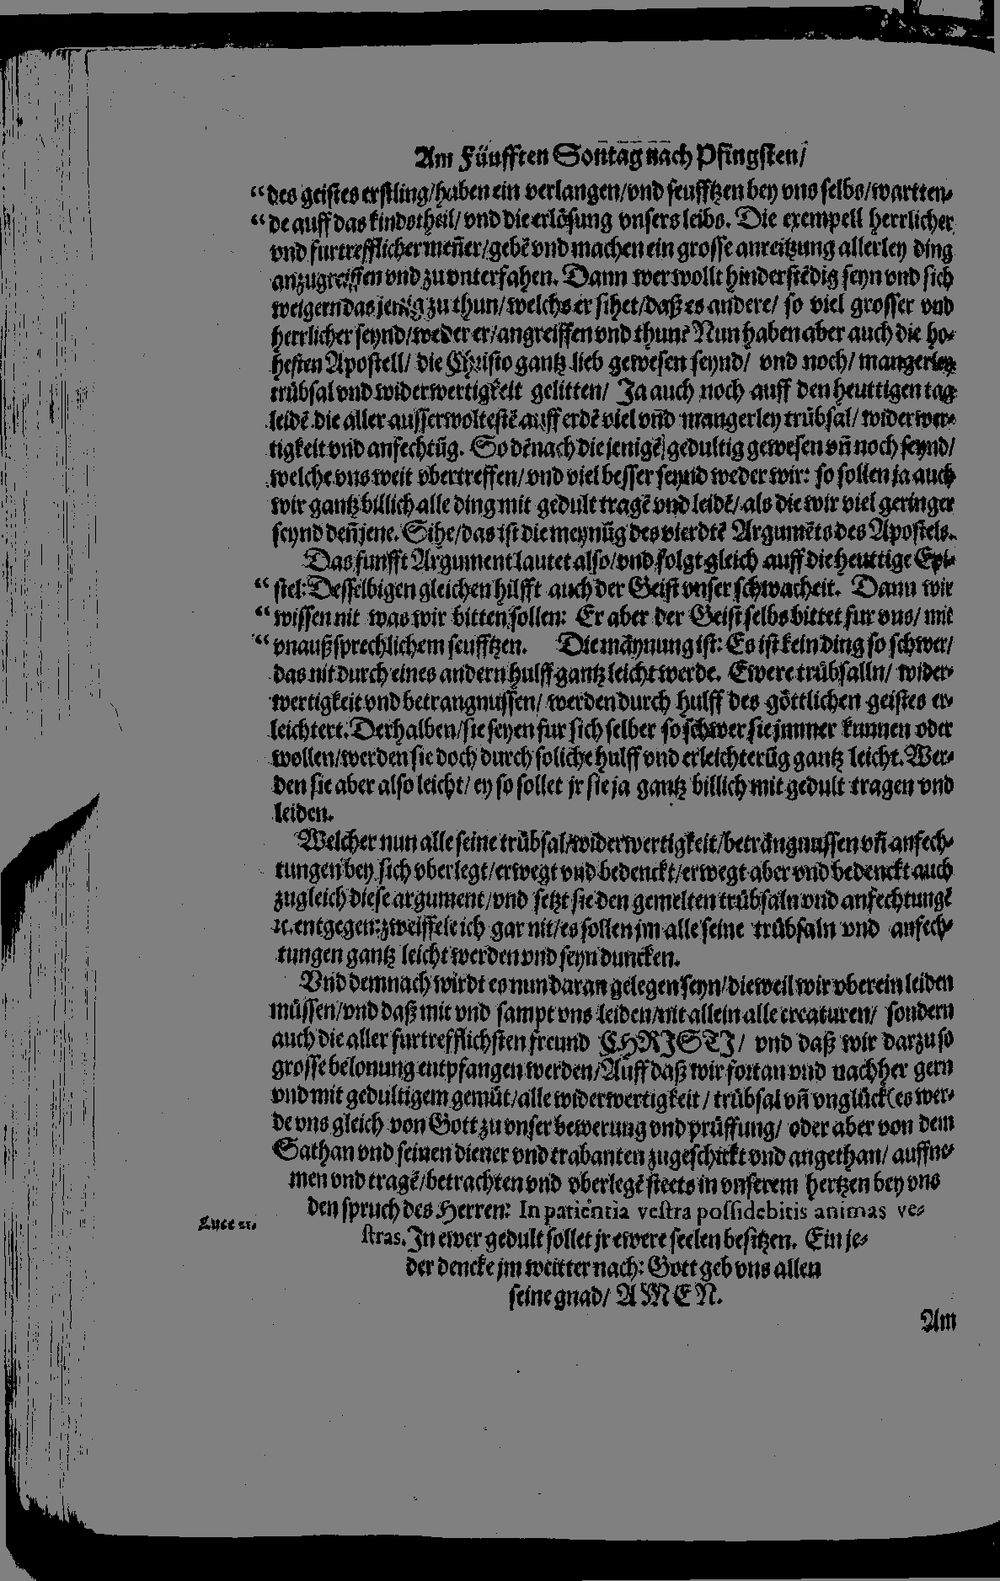 Am Füufften Sontag nach Pfingsten/
“des geistes erstling/haben ein verlangen/vnd seufftzen bey vns selbs/wartten-
“de auff das kindstheil/ vnd die erlösung vnsers leibs. Die exempell herrlicher
vnd furtrefflicher meñer/gebẽ vnd machen ein grosse anreitzung allerley ding
anzugreiffen vnd zu vntersahen. Dann wer wollt hinderstẽdig seyn vnd sich
weigern das jenig zu thun/welchs er sihet/daß es andere/ so viel grosser vnd
herrlicher seynd/weder er/angreiffen vnd thun? Nun haben aber auch die ho-
hesten Apostell/ die Christo gantz lieb gewesen seynd/ vnd noch/ mangerley
trübsal vnd widerwertigkeit gelitten/ Ja auch noch auff den heuttigen tag
leidẽ die aller ausserwoltestẽ auff erdẽ viel vñd mangerley trübsal/ widerwer-
tigkeit vnd anfechtũg. So dẽnach die jenigẽ gedultig gewesen vñ noch seynd/
welche vns weit vbertreffen/ vnd viel besser seynd weder wir: so sollen ja auch
wir gantz billich alle ding mit gedult tragẽ vnd leidẽ/ als die wir viel geringer
seynd deñ jene. Sihe/das ist die meynũg des vierdtẽ Argumẽts des Apostels.
Das funfft Argument lautet also/vnd folgt gleich auff die heuttige Epi-
“stel: Desselbigen gleichen hilfft auch der Geist vnser schwacheit. Dann wir
“wissen nit was wir bitten sollen: Er aber der Geist selbs bittet fur vns/ mit
“vnaußsprechlichem seufftzen. Die mäynung ist: Es ist kein ding so schwer/
das nit durch eines andern hulff gantz leicht werde. Ewere trübsalln/ wider-
wertigkeit vnd betrangnussen/ werden durch hulff des göttlichen geistes er-
leichtert. Derhalben/sie seyen fur sich selber so schwer sie jmmer kunnen oder
wollen/werden sie doch durch soliche hulff vnd erleichterũg gantz leicht. Wer-
den sie aber also leicht/ ey so sollet jr sie ja gantz billich mit gedult tragen vnd
leiden.
Welcher nun alle seine trübsal/widerwertigkeit/beträngnussen vñ anfech-
tungen bey sich vberlegt/erwegt vnd bedenckt/erwegt aber vnd bedenckt auch
zugleich diese argument/vnd setzt sie den gemelten trübsaln vnd anfechtungẽ
ꝛc. entgegen: zweiffele ich gar nit/es sollen jm alle seine trübsaln vnd anfech-
tungen gantz leicht werden vnd seyn duncken.
Vnd demnach wirdt es nun daran gelegen seyn/dieweil wir vberein leiden
müssen/vnd daß mit vnd sampt vns leiden/nit allein alle creaturen/ sondern
auch die aller furtrefflichsten freund CHRISTI/ vnd daß wir darzu so
grosse belonung entpfangen werden/Auff daß wir fortan vnd nachher gern
vnd mit gedultigem gemüt/alle widerwertigkeit/ trübsal vñ vnglück (es wer-
de vns gleich von Gott zu vnser bewerung vnd prüffung/ oder aber von dem
Sathan vnd seinen diener vnd trabanten zugeschickt vnd angethan/ auffne-
men vnd tragẽ/betrachten vnd vberlegẽ steets in vnserem hertzen bey vns
den spruch des Herren: In patientia vestra possidebitis animas ve-
Luce 21.
stras. In ewer gedult sollet jr ewere seelen besitzen. Ein je-
der dencke jm weitter nach: Gott geb vns allen
seine gnad/ AMEN.
Am